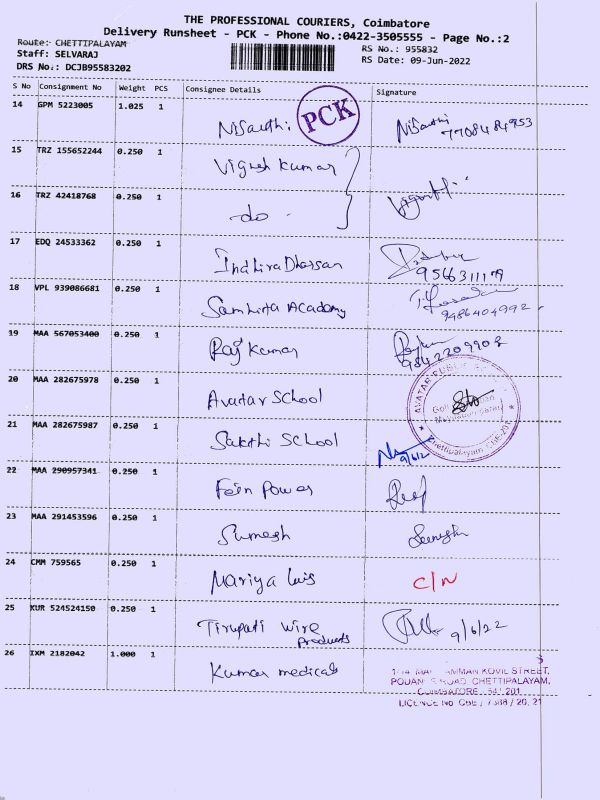 THE PROFESSIONAL COURIERS, Coimbatore
Delivery Runsheet - PCK - Phone No.:0422-3505555 - Page No.:2
Route:- CHETTIPALAYAM
Staff: SELVARAJ
DRS No.: DCJB95583202
RS No.: 955832
RS Date: 09-Jun-2022
S No Consignment No Weight PCS Consignee Details Signature
14 GPM 5223005 1.025 1
PCK
Nisanthi Nisanthi
7708484953
15 TRZ 155652244 0.250 1
Vignesh Kumar
16 TRZ 42418768 0.250 1
do
17 EDQ 24533362 0.250 1
Indhira Dharsan
9566311179
18 VPL 939086681 0.250 1
Samhita Academy
9486404992
19 MAA 567053400 0.250 1
Raj Kumar
9842209902
20 MAA 282675978 0.250 1
Avatar School
AVATAR PUBLIC
Chettipalayam, CBE-201
21 MAA 282675987 0.250 1
Sakthi School
9/6/2
22 MAA 290957341 0.250 1
Fein Power
23 MAA 291453596 0.250 1
Sumesh
24 CMM 759565 0.250 1
Mariya Luis C/N
25 KUR 524524150 0.250 1
Tirupati Wire
Products
9/6/22
26 IXM 2182042 1.000 1
Kumar medicals
AMMAN KOVIL STREET,
ROAD, CHETTIPALAYAM,
COIMBATORE - 641 201
LICENCE No CBE / 7388 / 20, 21